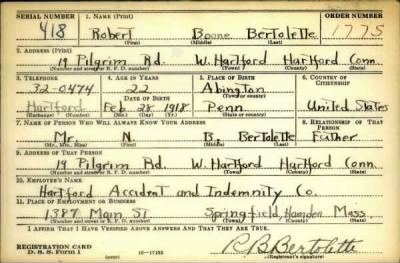 SERIAL NUMBER 1. NAME (Print) ORDER NUMBER
418 Robert Boone Bertolette 1775
(First) (Middle) (Last)
2. ADDRESS (Print)
19 Pilgrim Rd. W. Hartford Hartford Conn.
(Number and street or R. F. D. number) (Town) (County) (State)
3. TELEPHONE 4. AGE IN YEARS 5. PLACE OF BIRTH 6. COUNTRY OF CITIZENSHIP
32-0474 22 Abington
DATE OF BIRTH (Town or county)
Hartford Feb 28 1918 Penn United States
(Exchange) (Number) (Mo.) (Day) (Yr.) (State or country)
7. NAME OF PERSON WHO WILL ALWAYS KNOW YOUR ADDRESS 8. RELATIONSHIP OF THAT PERSON
Mr. N. B. Bertolette Father
(Mr., Mrs., Miss) (First) (Middle) (Last)
9. ADDRESS OF THAT PERSON
19 Pilgrim Rd. W. Hartford Hartford Conn.
(Number and street or R. F. D. number) (Town) (County) (State)
10. EMPLOYER'S NAME
Hartford Accident and Indemnity Co.
11. PLACE OF EMPLOYMENT OR BUSINESS
1387 Main St Springfield, Hamden Mass.
(Number and street or R. F. D. number) (Town) (County) (State)
I AFFIRM THAT I HAVE VERIFIED ABOVE ANSWERS AND THAT THEY ARE TRUE.
REGISTRATION CARD
D. S. S. Form 1 (over) R B Bertolette
(Registrant's signature)